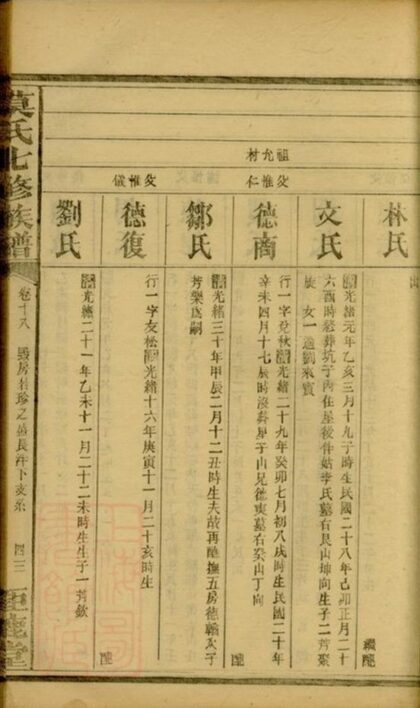 祖允材
父惟仁
父惟儀
林氏
文氏
清光緒元年乙亥三月十九子時生民國二十八年己卯正月二十
六酉時
屋後
李氏墓右艮山坤向生子二芳聚
女一適劉來賓
德商
行一字
秋清光緒二十九年癸卯七月初八戌時生民國二十年
辛未四月十七辰時沒葬
子山兄德
墓右癸山丁向
鄒氏
清光緒三十年甲辰二月十二丑時生夫故再醮撫五房德
次子
芳樂為嗣
德復
行一字友松清光緒十六年庚寅十一月二十亥時生
劉氏
清光緒二十一年乙未十一月二十二未時生生子一芳欽
莫氏七修族譜
卷十八
房
珍之
長
下支系
四三
堂